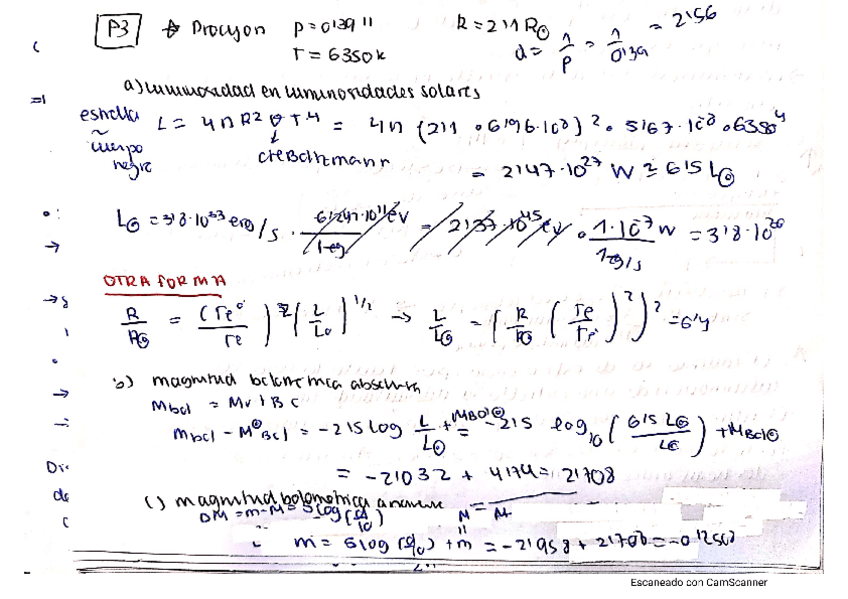 P3 ☆ Procyon p=0'39" R=2'11 R⊙
T=6350K d= 1/p = 1/0'39 = 2'56
a) luminosidad en luminosidades solares
estrella ~ cuerpo negro L= 4π R² σ T⁴ = 4π (2'11 · 6'96·10⁸)² · 5'67·10⁻⁸ · 6350⁴
cte Boltzmann = 2'47·10²⁷ W ≅ 6'5 L⊙
L⊙ = 3'8·10³³ erg/s · 6'247·10¹¹ eV / 1 erg = 2'37·10⁴⁵ eV/s · 1·10⁻⁷ W / 1 erg/s = 3'8·10²⁶
OTRA FORMA
R/R⊙ = (Te⊙/Te)² (L/L⊙)^1/2 → L/L⊙ = (R/R⊙ (Te/Te⊙)²)² = 6'4
b) magnitud bolometrica absoluta
Mbol = Mv + BC
Mbol - M⊙Bol = -2'5 log L/L⊙ + MBol⊙ = -2'5 log₁₀ (6'5 L⊙/L⊙) + MBol⊙
= -2'032 + 4'74 = 2'708
c) magnitud bolometrica aparente
DM = m-M = 5 log(d/10)
m = 5 log (d/10) + M = -2'958 + 2'708 = -0'2503
Escaneado con CamScanner